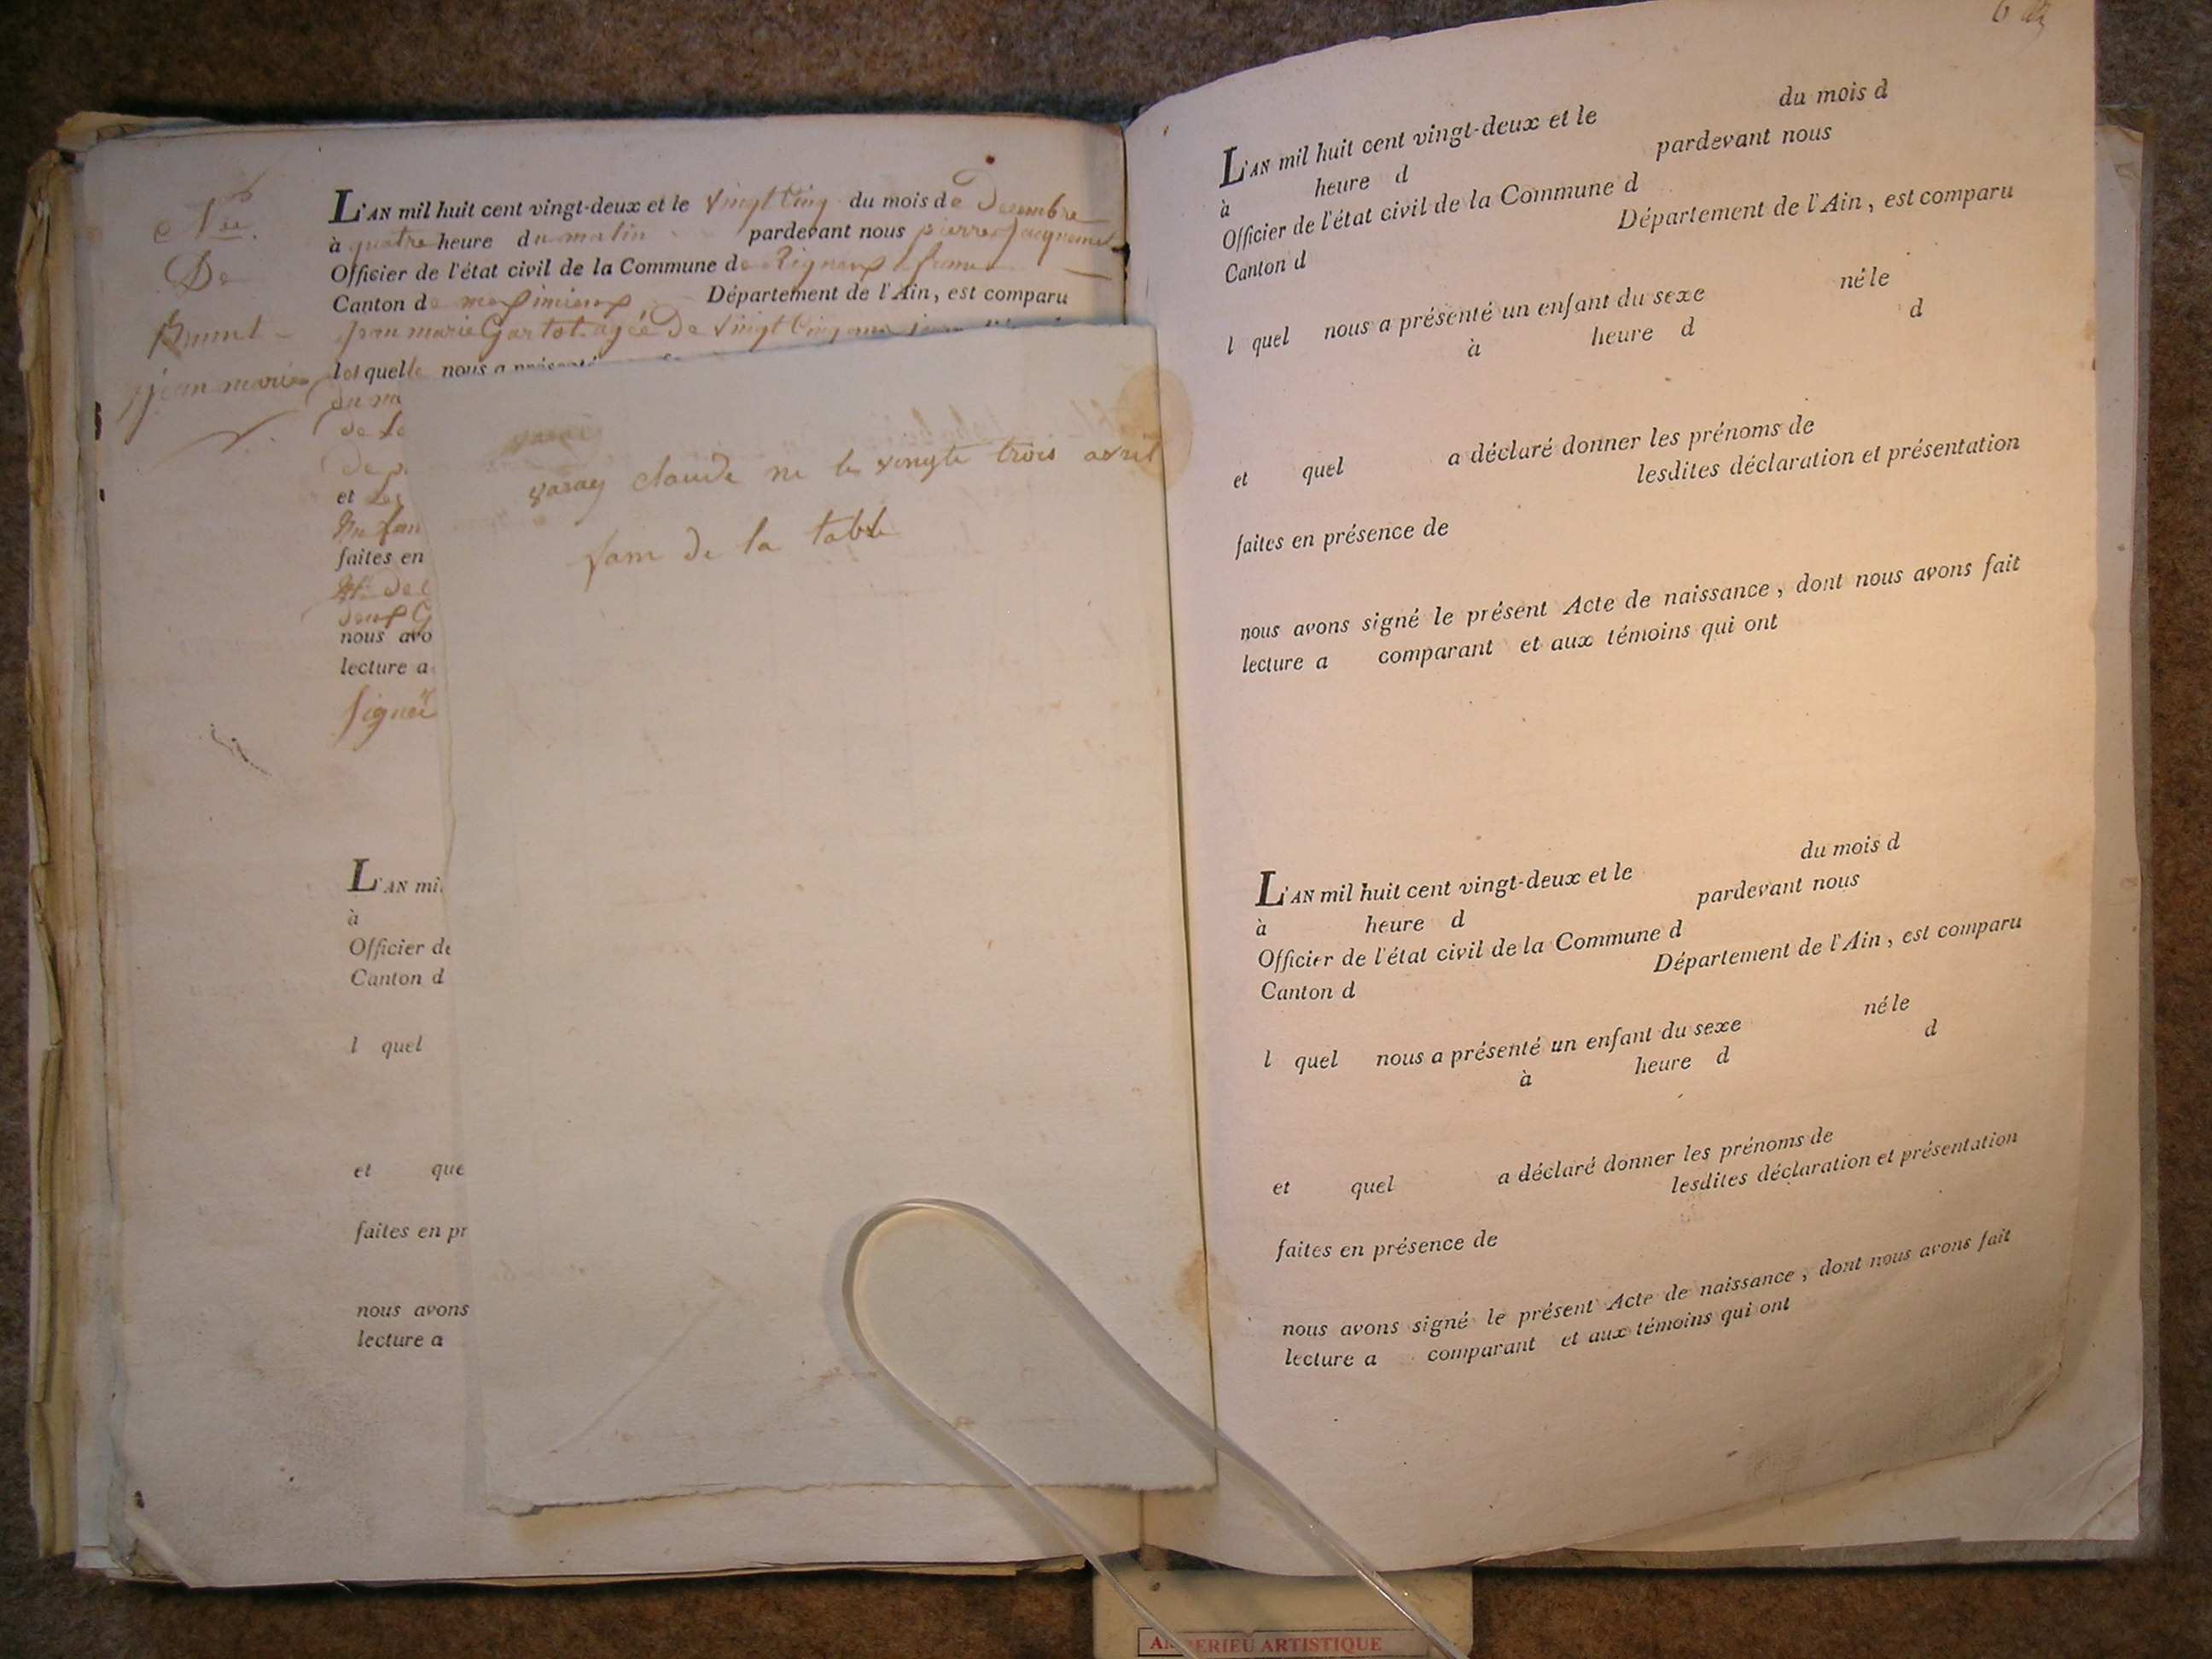 Née
De
Brunet
jean marie
L'AN mil huit cent vingt-deux et le vingt cinq du mois de Decembre
à quatre heure du matin pardevant nous pierre jacquemet
Officier de l'état civil de la Commune de Rigneux le franc
Canton de meximieux Département de l'Ain, est comparu
jean marie agée De vingt cinq ans
lequelle nous a présenté
du ma
de
de p
et
faites en
nous avo
lecture a
signé
varay
varay claude ne le vingte trois avril
fam de la table
L'AN mi
à
Officier de
Canton d
l quel
et que
faites en pr
nous avons
lecture a
L'AN mil huit cent vingt-deux et le du mois d
à heure d pardevant nous
Officier de l'état civil de la Commune d
Canton d Département de l'Ain, est comparu
l quel nous a présenté un enfant du sexe né le
à heure d d
et quel a déclaré donner les prénoms de
lesdites déclaration et présentation
faites en présence de
nous avons signé le présent Acte de naissance, dont nous avons fait
lecture a comparant et aux témoins qui ont
L'AN mil huit cent vingt-deux et le du mois d
à heure d pardevant nous
Officier de l'état civil de la Commune d
Canton d Département de l'Ain, est comparu
l quel nous a présenté un enfant du sexe né le
à heure d d
et quel a déclaré donner les prénoms de
lesdites déclaration et présentation
faites en présence de
nous avons signé le présent Acte de naissance, dont nous avons fait
lecture a comparant et aux témoins qui ont
ARTISTIQUE